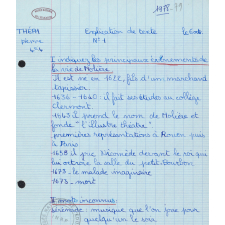 1978-79
THÉRY
Explication de texte
le 6 oct.
N°1
I indiquez les principaux événements de
la vie de Molière
Il est né en 1622, fils d'un marchand
tapissier
1636 - 1640 : il fait ses études au collège
Clermont.
1643 il prend le nom de Molière et
fonde "l'illustre théâtre"
premières représentations à Rouen puis
à Paris
1658 il joue Nicomède devant le roi qui
lui octroie la salle du petit-Bourbon
1673 le malade imaginaire
1673 mort
II mots inconnus:
Sérénade: musique que l'on joue pour
quelqu'un le soir